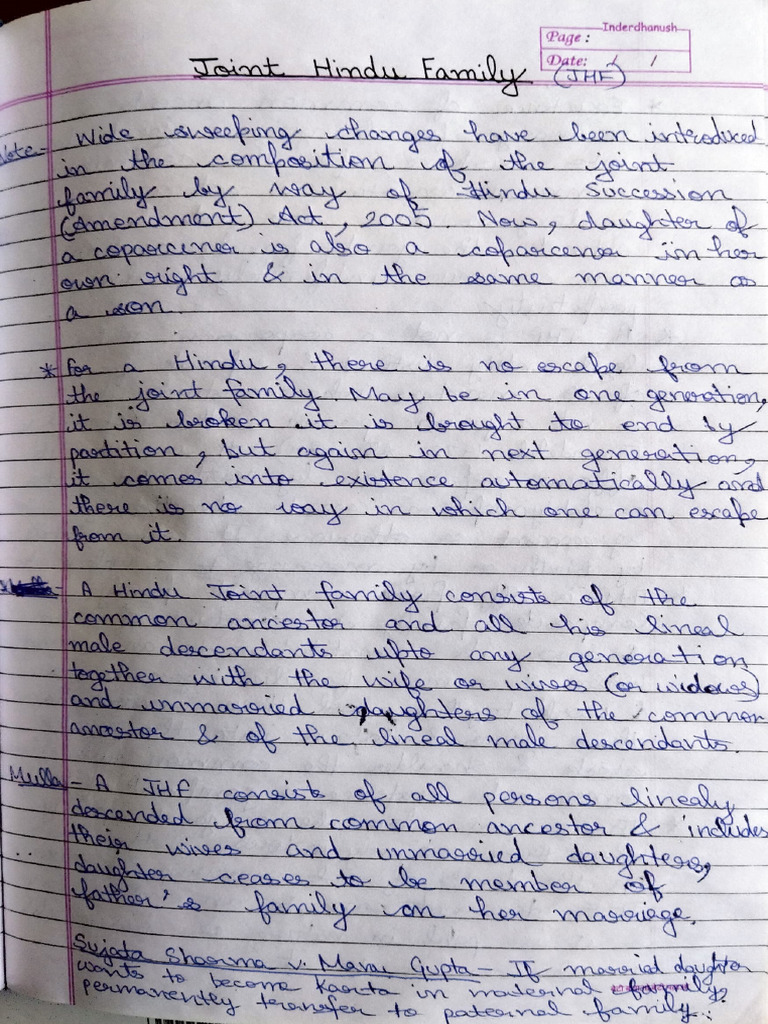 Inderdhanush
Page :
Date: / /
Joint Hindu Family (JHF)
Note- Wide sweeping changes have been introduced
in the composition of the joint
family by way of Hindu Succession
(Amendment) Act, 2005. Now, daughter of
a coparcener is also a coparcener in her
own right & in the same manner as
a son.
* For a Hindu, there is no escape from
the joint family. May be in one generation,
it is broken it is brought to end by
partition, but again in next generation,
it comes into existence automatically and
there is no way in which one can escape
from it.
A Hindu Joint family consists of the
common ancestor and all his lineal
male descendants upto any generation
together with the wife or wives (or widows)
and unmarried daughters of the common
ancestor & of the lineal male descendants.
Mulla - A JHF consists of all persons linealy
descended from common ancestor & includes
their wives and unmarried daughters,
daughter ceases to be member of
father's family on her marriage.
Sujata Sharma v. Manu Gupta - If married daughter
wants to become Karta in maternal family,
permanently transfer to paternal family.